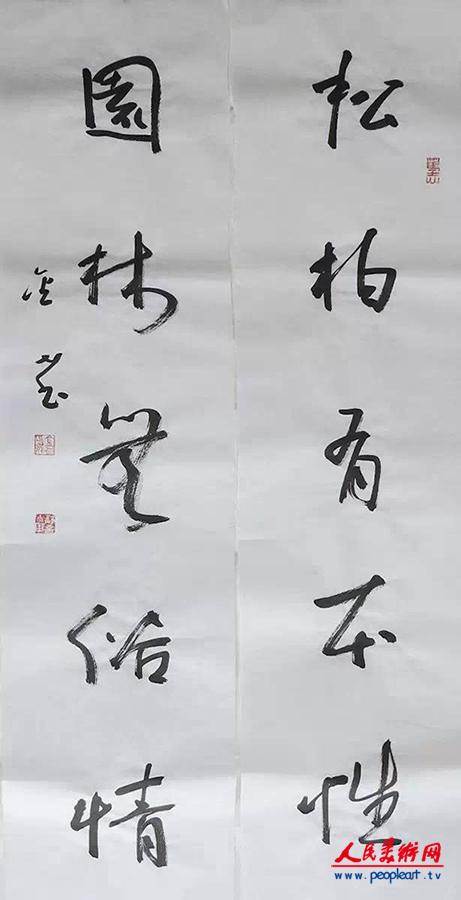 松柏有本性
園林無俗情
人民美術网
www.peopleart.tv